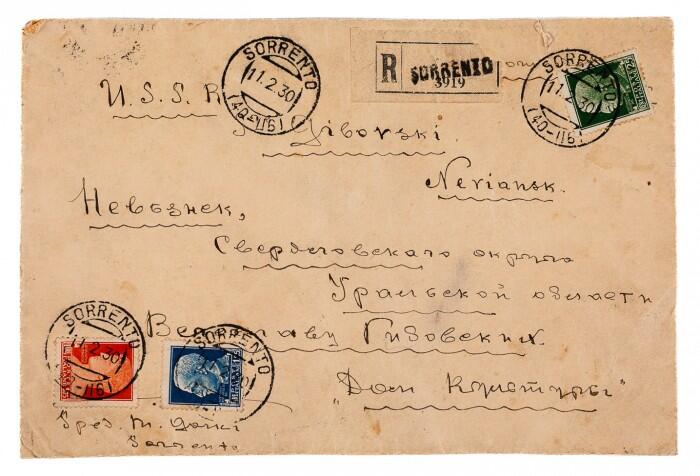 SORRENTO
11.2.30
(40-116)
R SORRENTO
3919
SORRENTO
11.2.30
(40-116)
U.S.S.R
Gibovski.
Neviansk.
Невьянск,
Свердловского округа
Уральской области
SORRENTO
11.2.30
(40-116)
SORRENTO
Гизовских.
"Дом Культуры"
Sped. M. Gorki
Sorrento